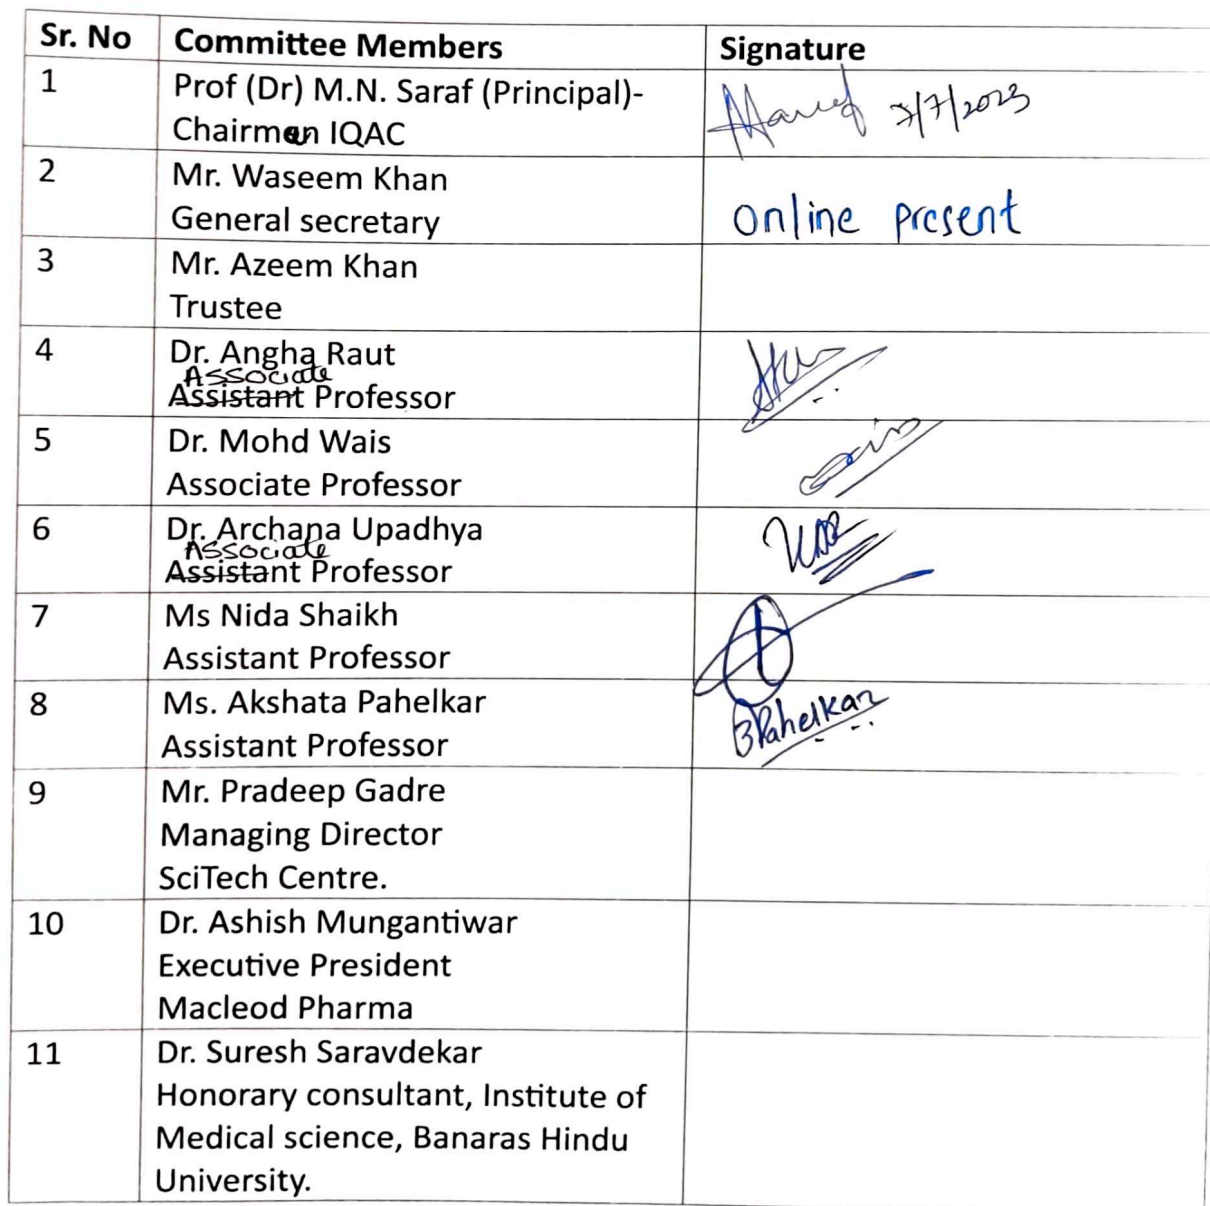 Sr. No Committee Members Signature
1 Prof (Dr) M.N. Saraf (Principal)-
Chairmen IQAC
7/7/2023
2 Mr. Waseem Khan
General secretary
online present
3 Mr. Azeem Khan
Trustee
4 Dr. Angha Raut
Associate
Assistant Professor
5 Dr. Mohd Wais
Associate Professor
6 Dr. Archana Upadhya
Associate
Assistant Professor
7 Ms Nida Shaikh
Assistant Professor
8 Ms. Akshata Pahelkar
Assistant Professor
Pahelkar
9 Mr. Pradeep Gadre
Managing Director
SciTech Centre.
10 Dr. Ashish Mungantiwar
Executive President
Macleod Pharma
11 Dr. Suresh Saravdekar
Honorary consultant, Institute of
Medical science, Banaras Hindu
University.